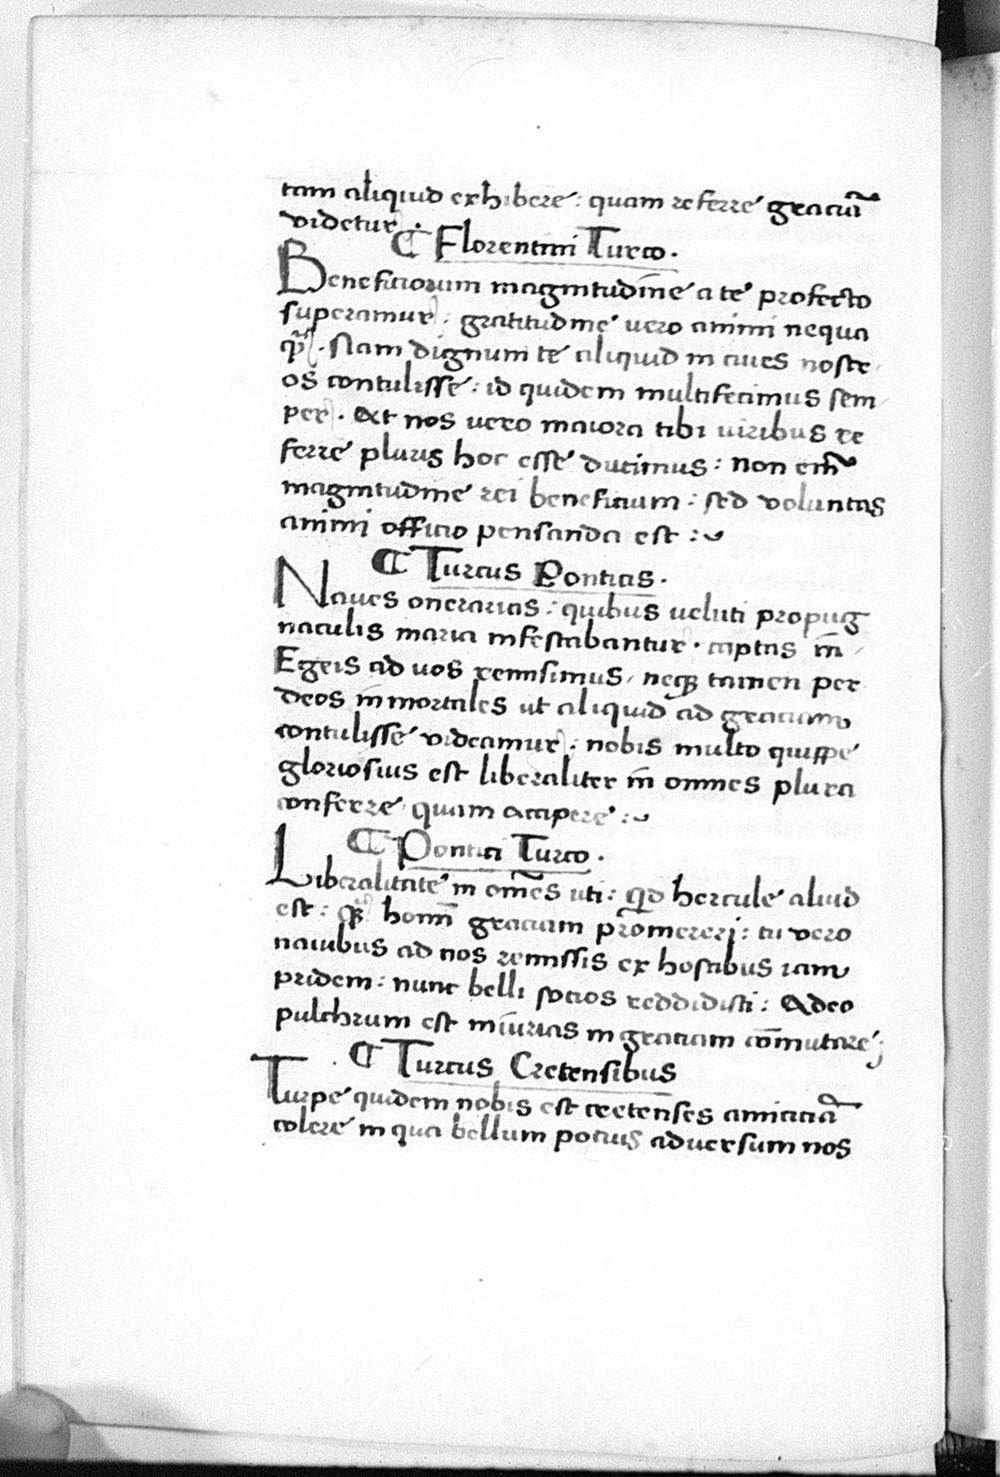 tam aliquid exhibere: quam referre graciā
videtur.
¶ Florentini Turco.
Beneficiorum magnitudine a te profecto
superamur: gratitudine vero animi nequa
q̃. Nam dignum te aliquid in ciues nostr
os contulisse: id quidem multifecimus sem
per. At nos uero maiora tibi uiribus re
ferre pluris hoc esse ducimus: non em̄
magnitudine rei beneficium: sed voluntas
animi officio pensanda est:~
¶ Turcus Ponticis.
Naues onerarias: quibus ueluti propug
naculis maria infestabantur. captas in
Egeis ad uos remisimus, neqꝫ tamen per
deos immortales ut aliquid ad graciam
contulisse videamur: nobis multo quippe
gloriosius est liberaliter in omnes plura
conferre quam accipere:~
¶ Pontici Turco.
Liberalitate in om̄es uti: qd hercule aliud
est: q̃ homī graciam promererj: tu vero
nauibus ad nos remissis ex hostibus iam
pridem: nunc belli socios reddidisti: Adeo
pulchrum est iniurias in graciam cōmutare;
¶ Turcus Cretensibus
Turpe quidem nobis est cretenses amiciciā
colere in qua bellum pocius aduersum nos